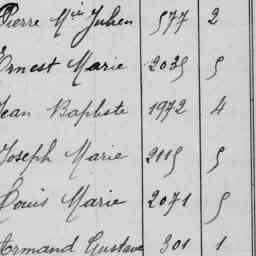 Pierre Mie Julien 577 2
Ernest Marie 2035 5
Jean Baptiste 1972 4
Joseph Marie 2115 5
Louis Marie 2071 5
Armand Gustave 301 1